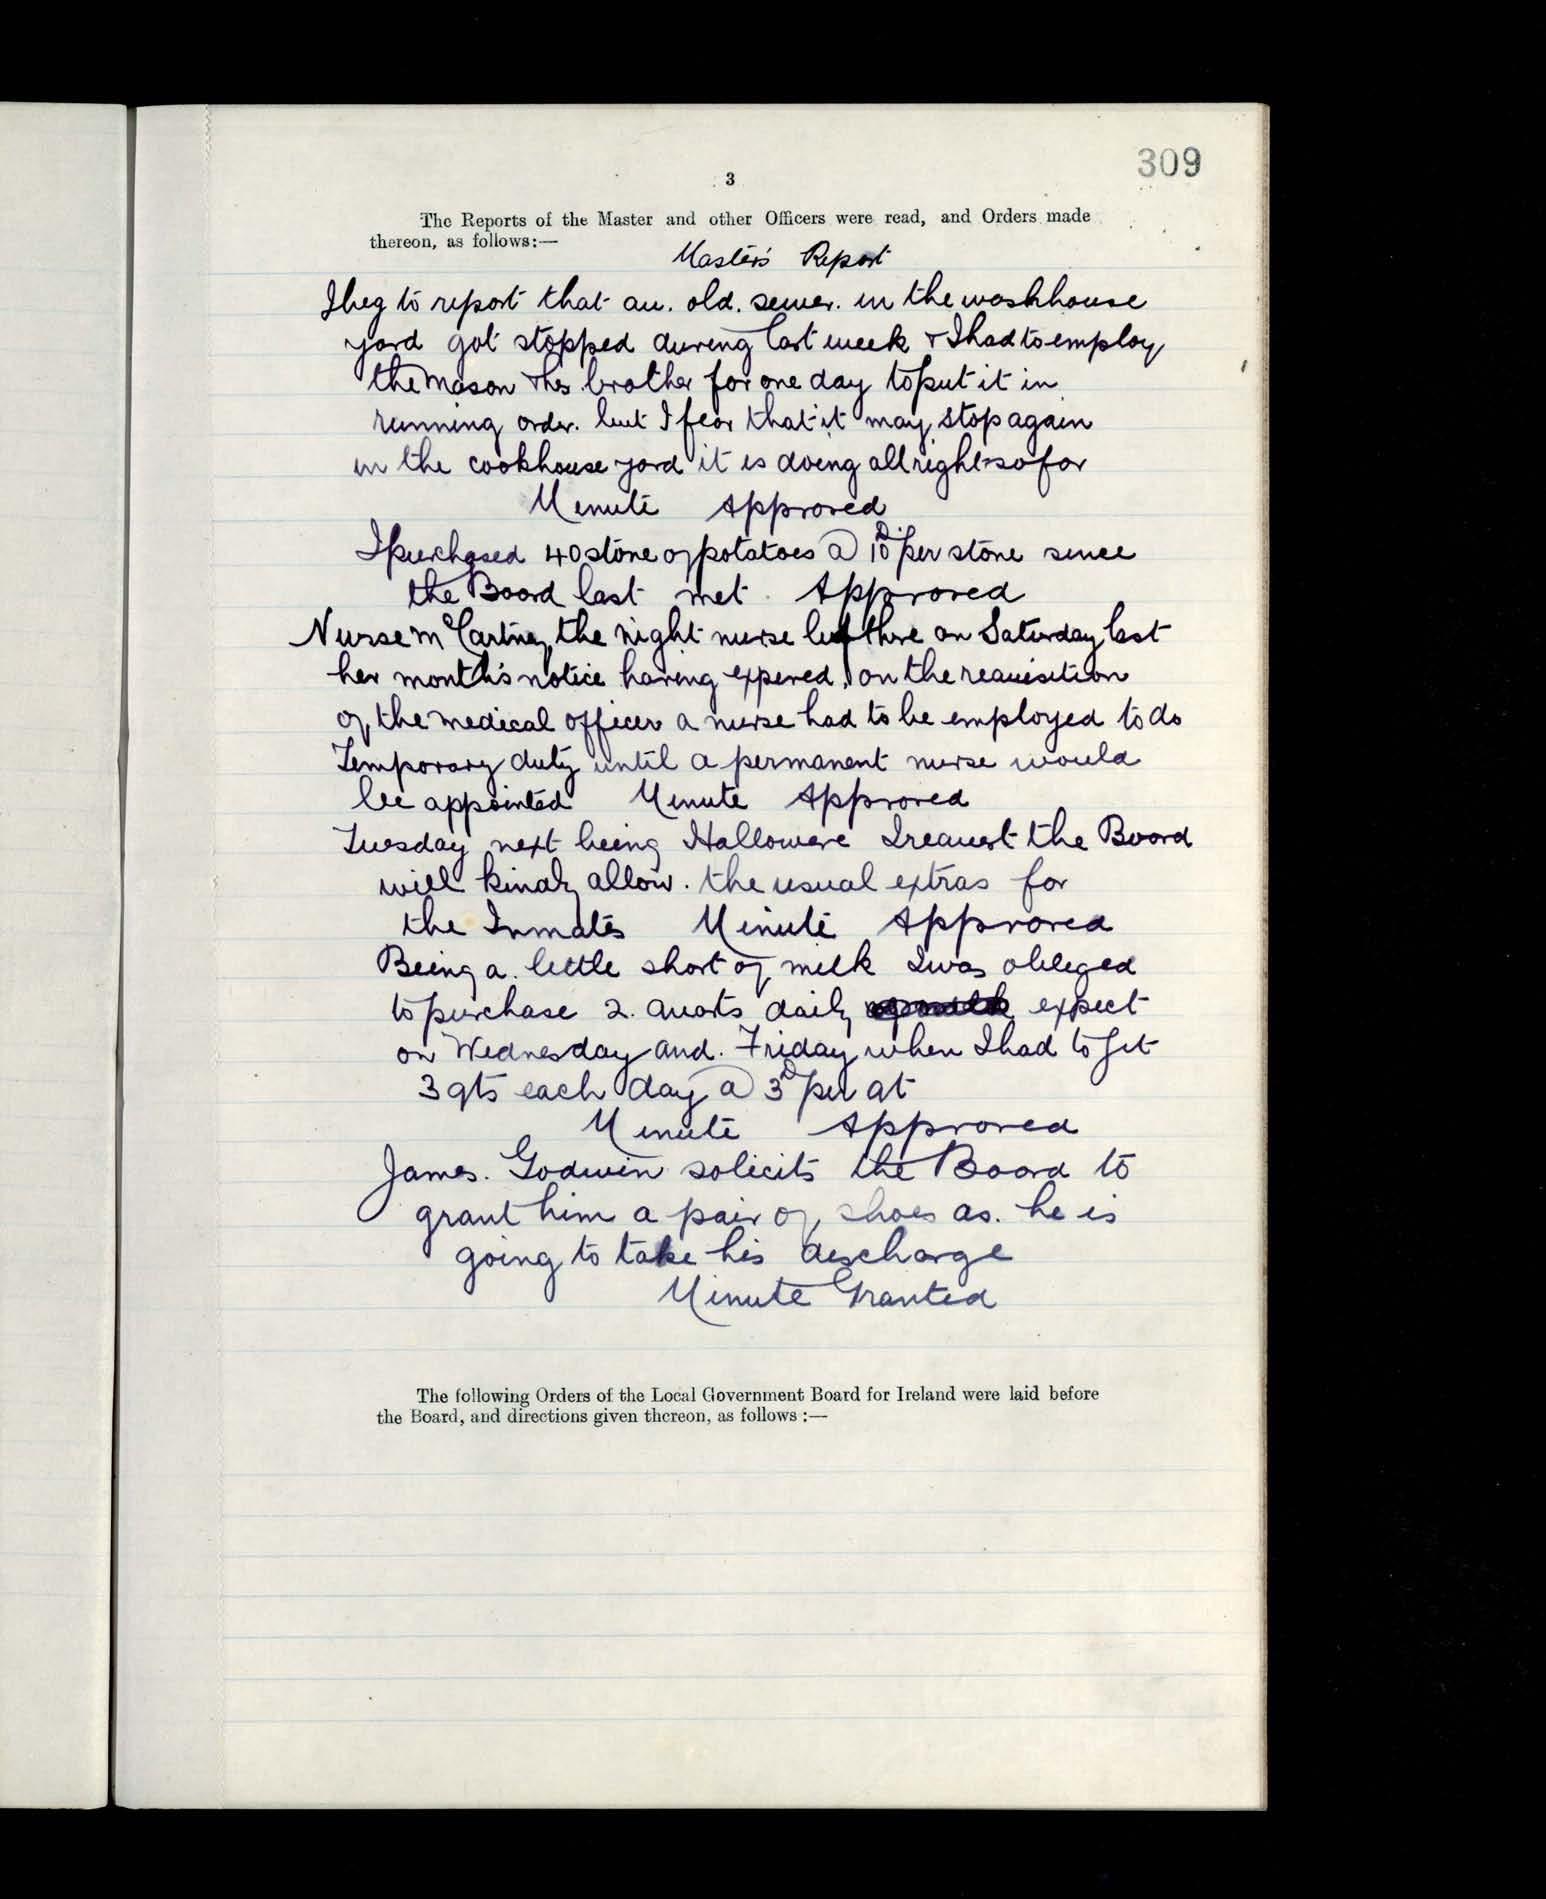 309
3
The Reports of the Master and other Officers were read, and Orders made
thereon, as follows:—
Master's Report
I beg to report that an. old. sewer. in the washhouse
yard got stopped during last week & I had to employ
the mason & his brother for one day to put it in
running order. but I fear that it may stop again
in the cookhouse yard it is doing all right so far
Minute Approved
I purchased 40 stone of potatoes @ 10D per stone since
the Board last met. Approved
Nurse McCartney the night nurse left here on Saturday last
her month's notice having expired, on the requisition
of the medical officer a nurse had to be employed to do
Temporary duty until a permanent nurse would
be appointed Minute Approved
Tuesday next being Halloweve I request the Board
will kindly allow. the usual extras for
the Inmates Minute Approved
Being a. little short of milk I was obliged
to purchase 2. quarts daily expect
on Wednesday and. Friday when I had to get
3 qts each day @ 3D per qt
Minute Approved
James. Godwin solicits the Board to
grant him a pair of shoes as. he is
going to take his discharge
Minute Granted
The following Orders of the Local Government Board for Ireland were laid before
the Board, and directions given thereon, as follows :—